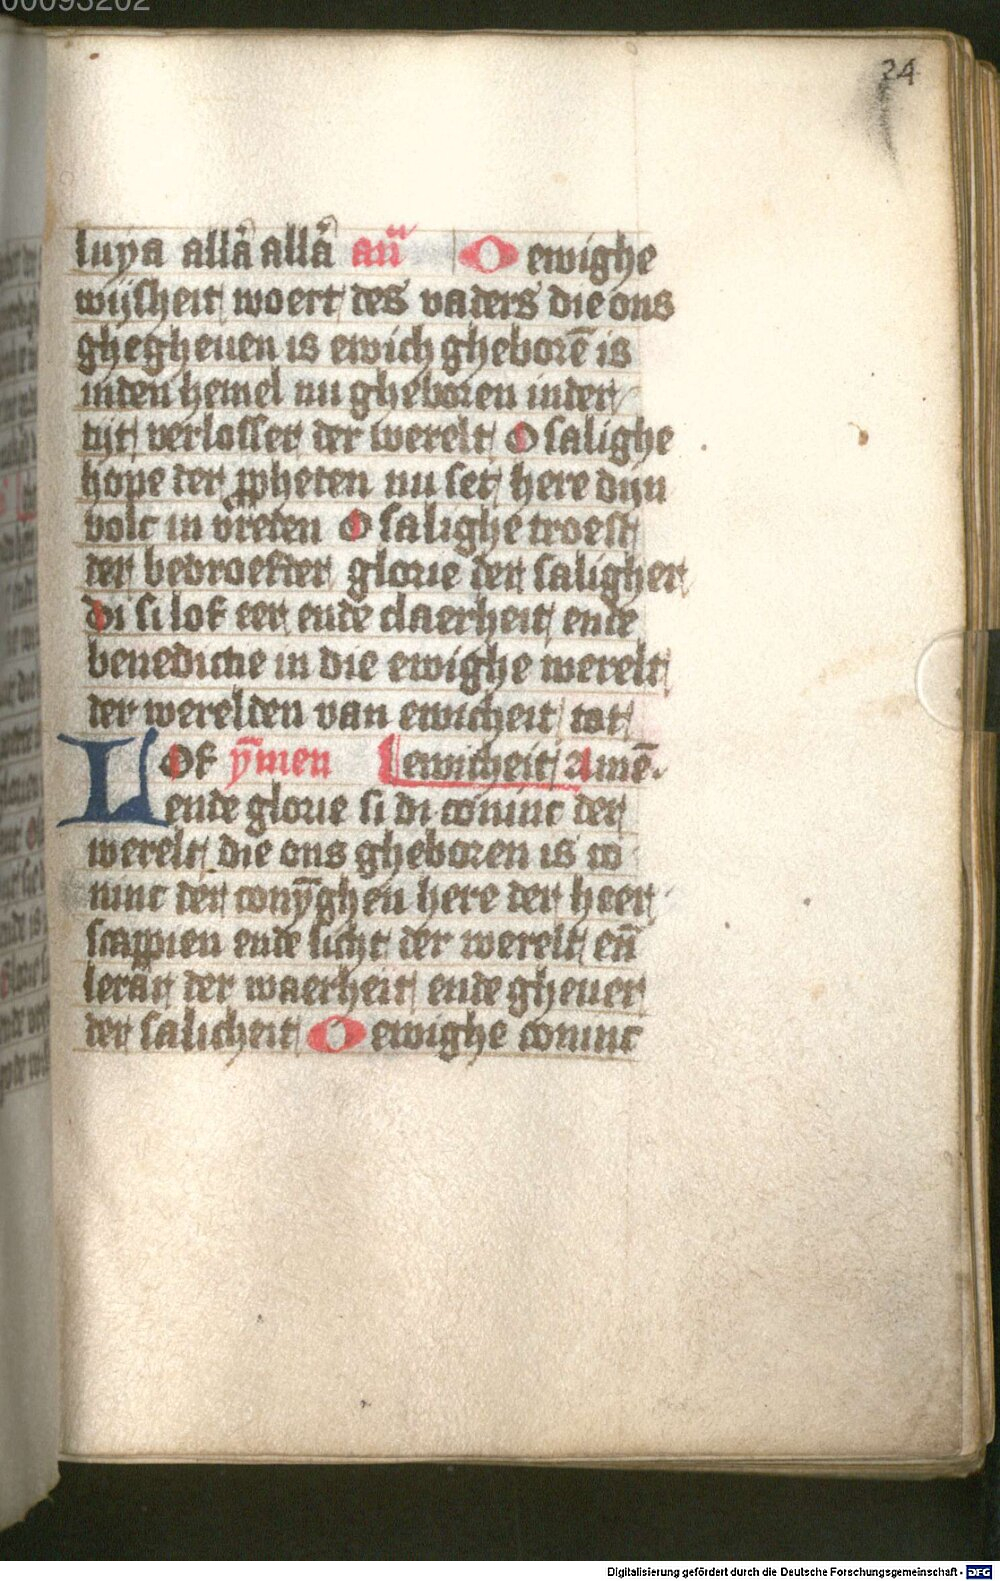 00093202
24
luya allā allā an̄ O ewighe
wijsheit woert des vaders die ons
ghegheuen is ewich gheborē is
inden hemel nu gheboren inder
tijt verlosser der werelt O salighe
hope der ꝓpheten nu set here dijn
volc in vreden O salighe troest
der bedroefder glorie der saligher
di si lof eer ende claerheit ende
benedictie in die ewighe werelt
der werelden van ewicheit tot
LOf ȳmen ewicheit Amē.
ende glorie si di coninc der
werelt die ons gheboren is co
ninc der conȳghen here der heer
scappien ende licht der werelt en̄
lerar der waerheit ende gheuer
der salicheit O ewighe coninc
Digitalisierung gefördert durch die Deutsche Forschungsgemeinschaft - DFG